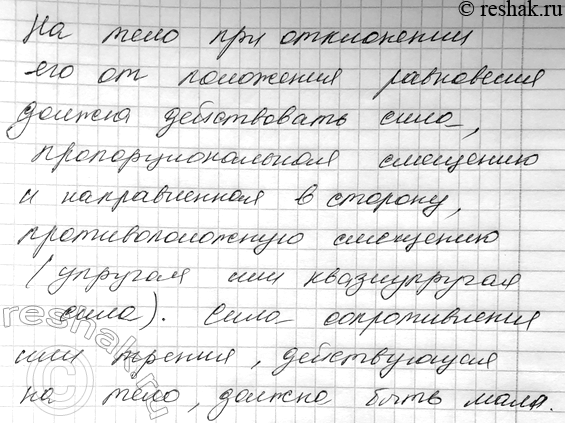 © reshak.ru
На тело при отклонении
его от положения равновесия
должна действовать сила,
пропорциональная смещению
и направленная в сторону,
противоположную смещению
(упругая или квазиупругая
сила). Сила сопротивления
или трения, действующая
на тело, должна быть мала.
reshak.ru